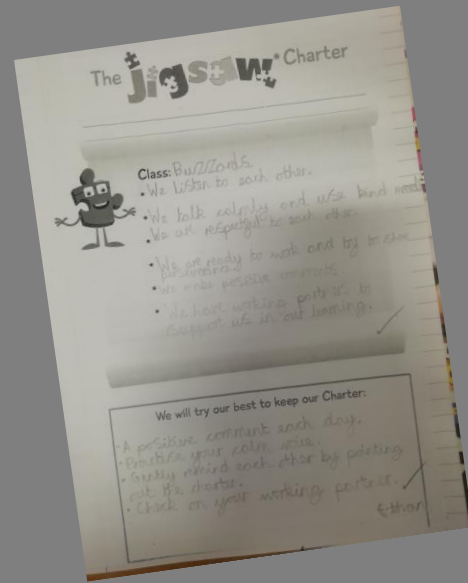 The Jigsaw Charter
Class: Buzzards
• We listen to each other.
• We talk calmly and use kind words
• We are respectful to each other.
• We are ready to work and try to show
• We make positive comments
• We have working partners to
support us in our learning.
We will try our best to keep our Charter:
• A positive comment each day.
• Practice your calm voice.
• Gently remind each other by pointing
out the charter.
• Check on your working partner.
Ethan